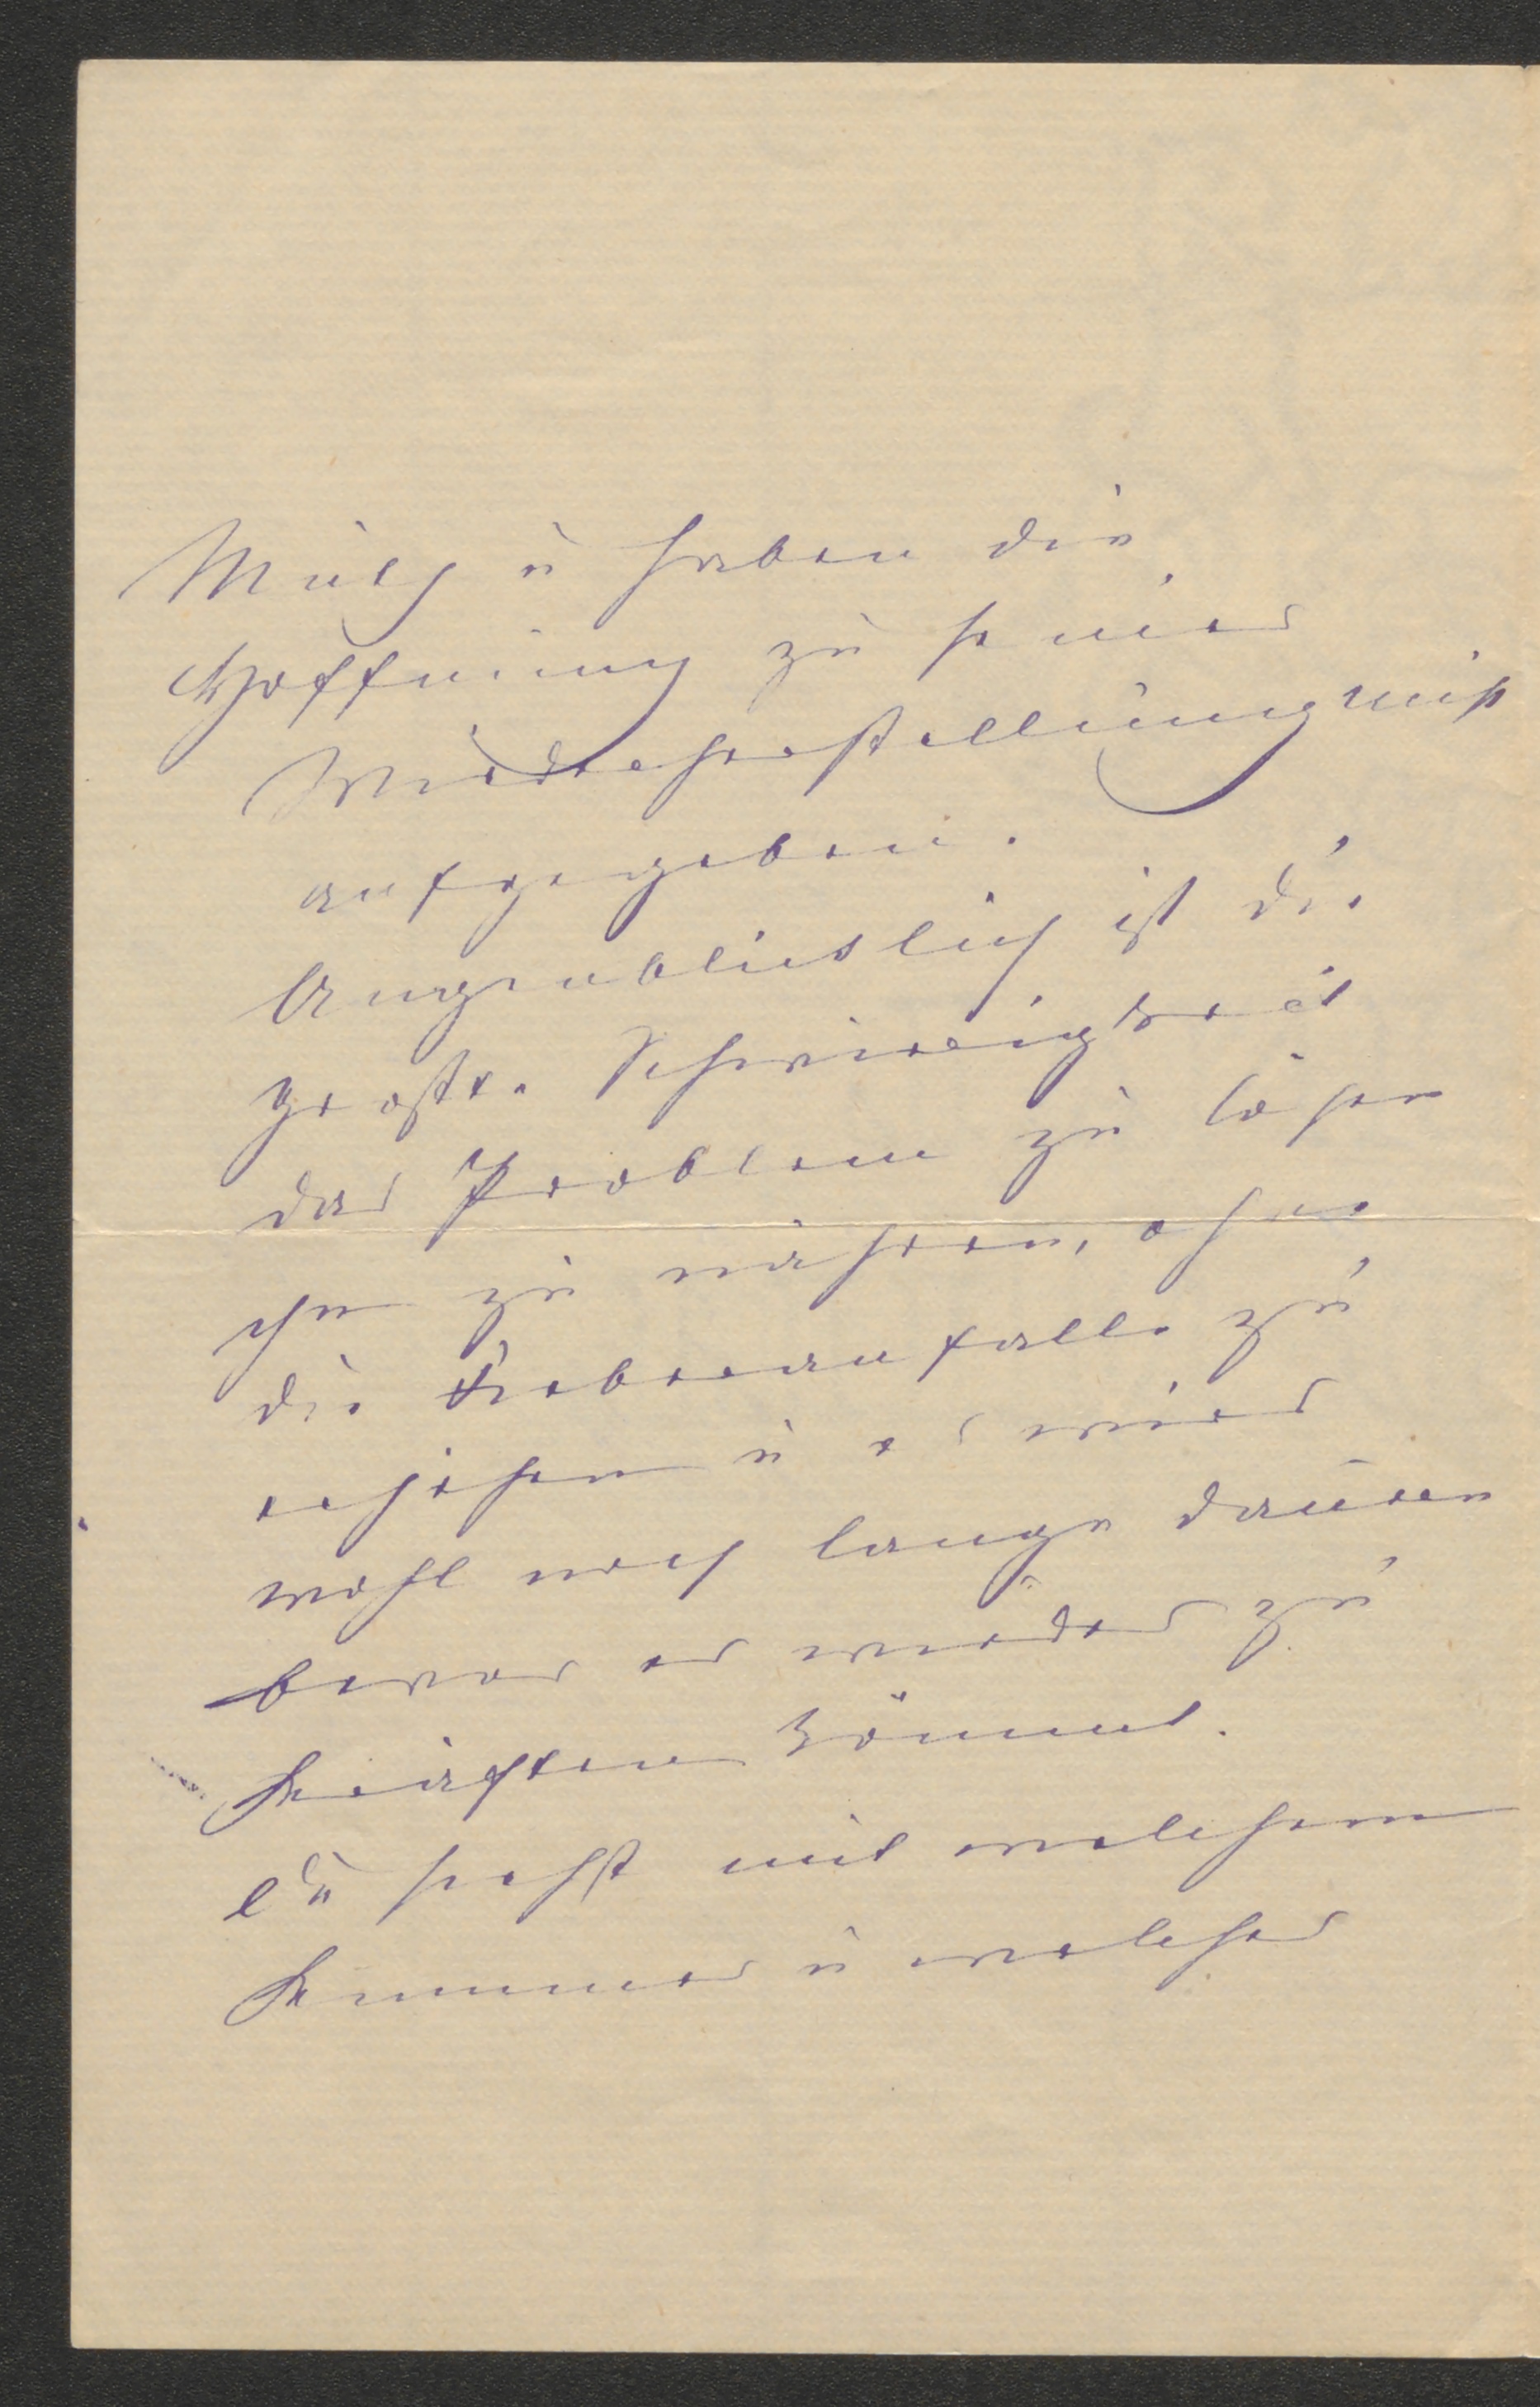 Muth u haben die
Hoffnung zu seiner
Wiederherstellung nicht
aufgegeben.
Augenblicklich ist die
großte Schwierigkeit
das Problem zu lösen
ihn zu nähren, ohne
die Fieberanfalle zu
erhöhen u es wird
wohl noch lange dauern
bevor er wieder zu
Kräften kömmt.
Du siehst mit welchem
Kummer u welcher